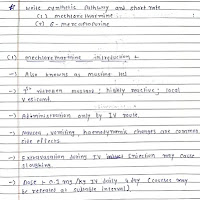 * Write synthetic Pathway and short note
(i) mechlorethamine
(ii) 6-mercaptopurine
(1) mechlorethamine introduction :-
→ Also known as mustine Hcl
→ nitrogen mustard ; highly reactive ; local
vesicant.
→ Administration only by IV route.
→ Nausea, vomiting, haemodynamic changes are common
side effects.
→ Extravasation during IV injection may cause
sloughing.
→ Dose :- 0.1 mg/kg IV daily 4 day (courses may
be repeated at suitable interval).